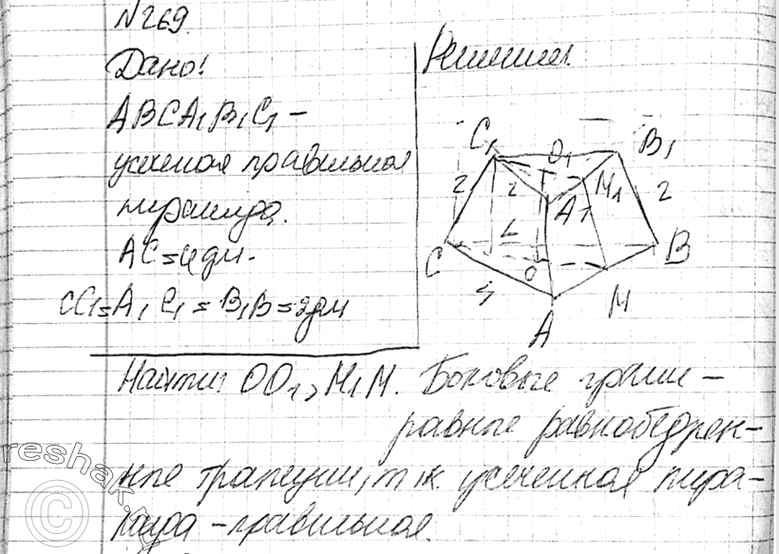 №269.
Дано:
ABCA₁B₁C₁ –
усеченая правильная
пирамида.
AC = 4 дм.
CC₁ = A₁C₁ = B₁B = 2 дм
Найти: OO₁, M₁M.
Решение:
C₁ O₁ B₁
2 2 A₁ M₁ 2
L
C O B
4 M
A
Боковые грани –
равные равнобедрен-
ные трапеции, т.к. усеченная пира-
мида – правильная.
reshak.ru
©